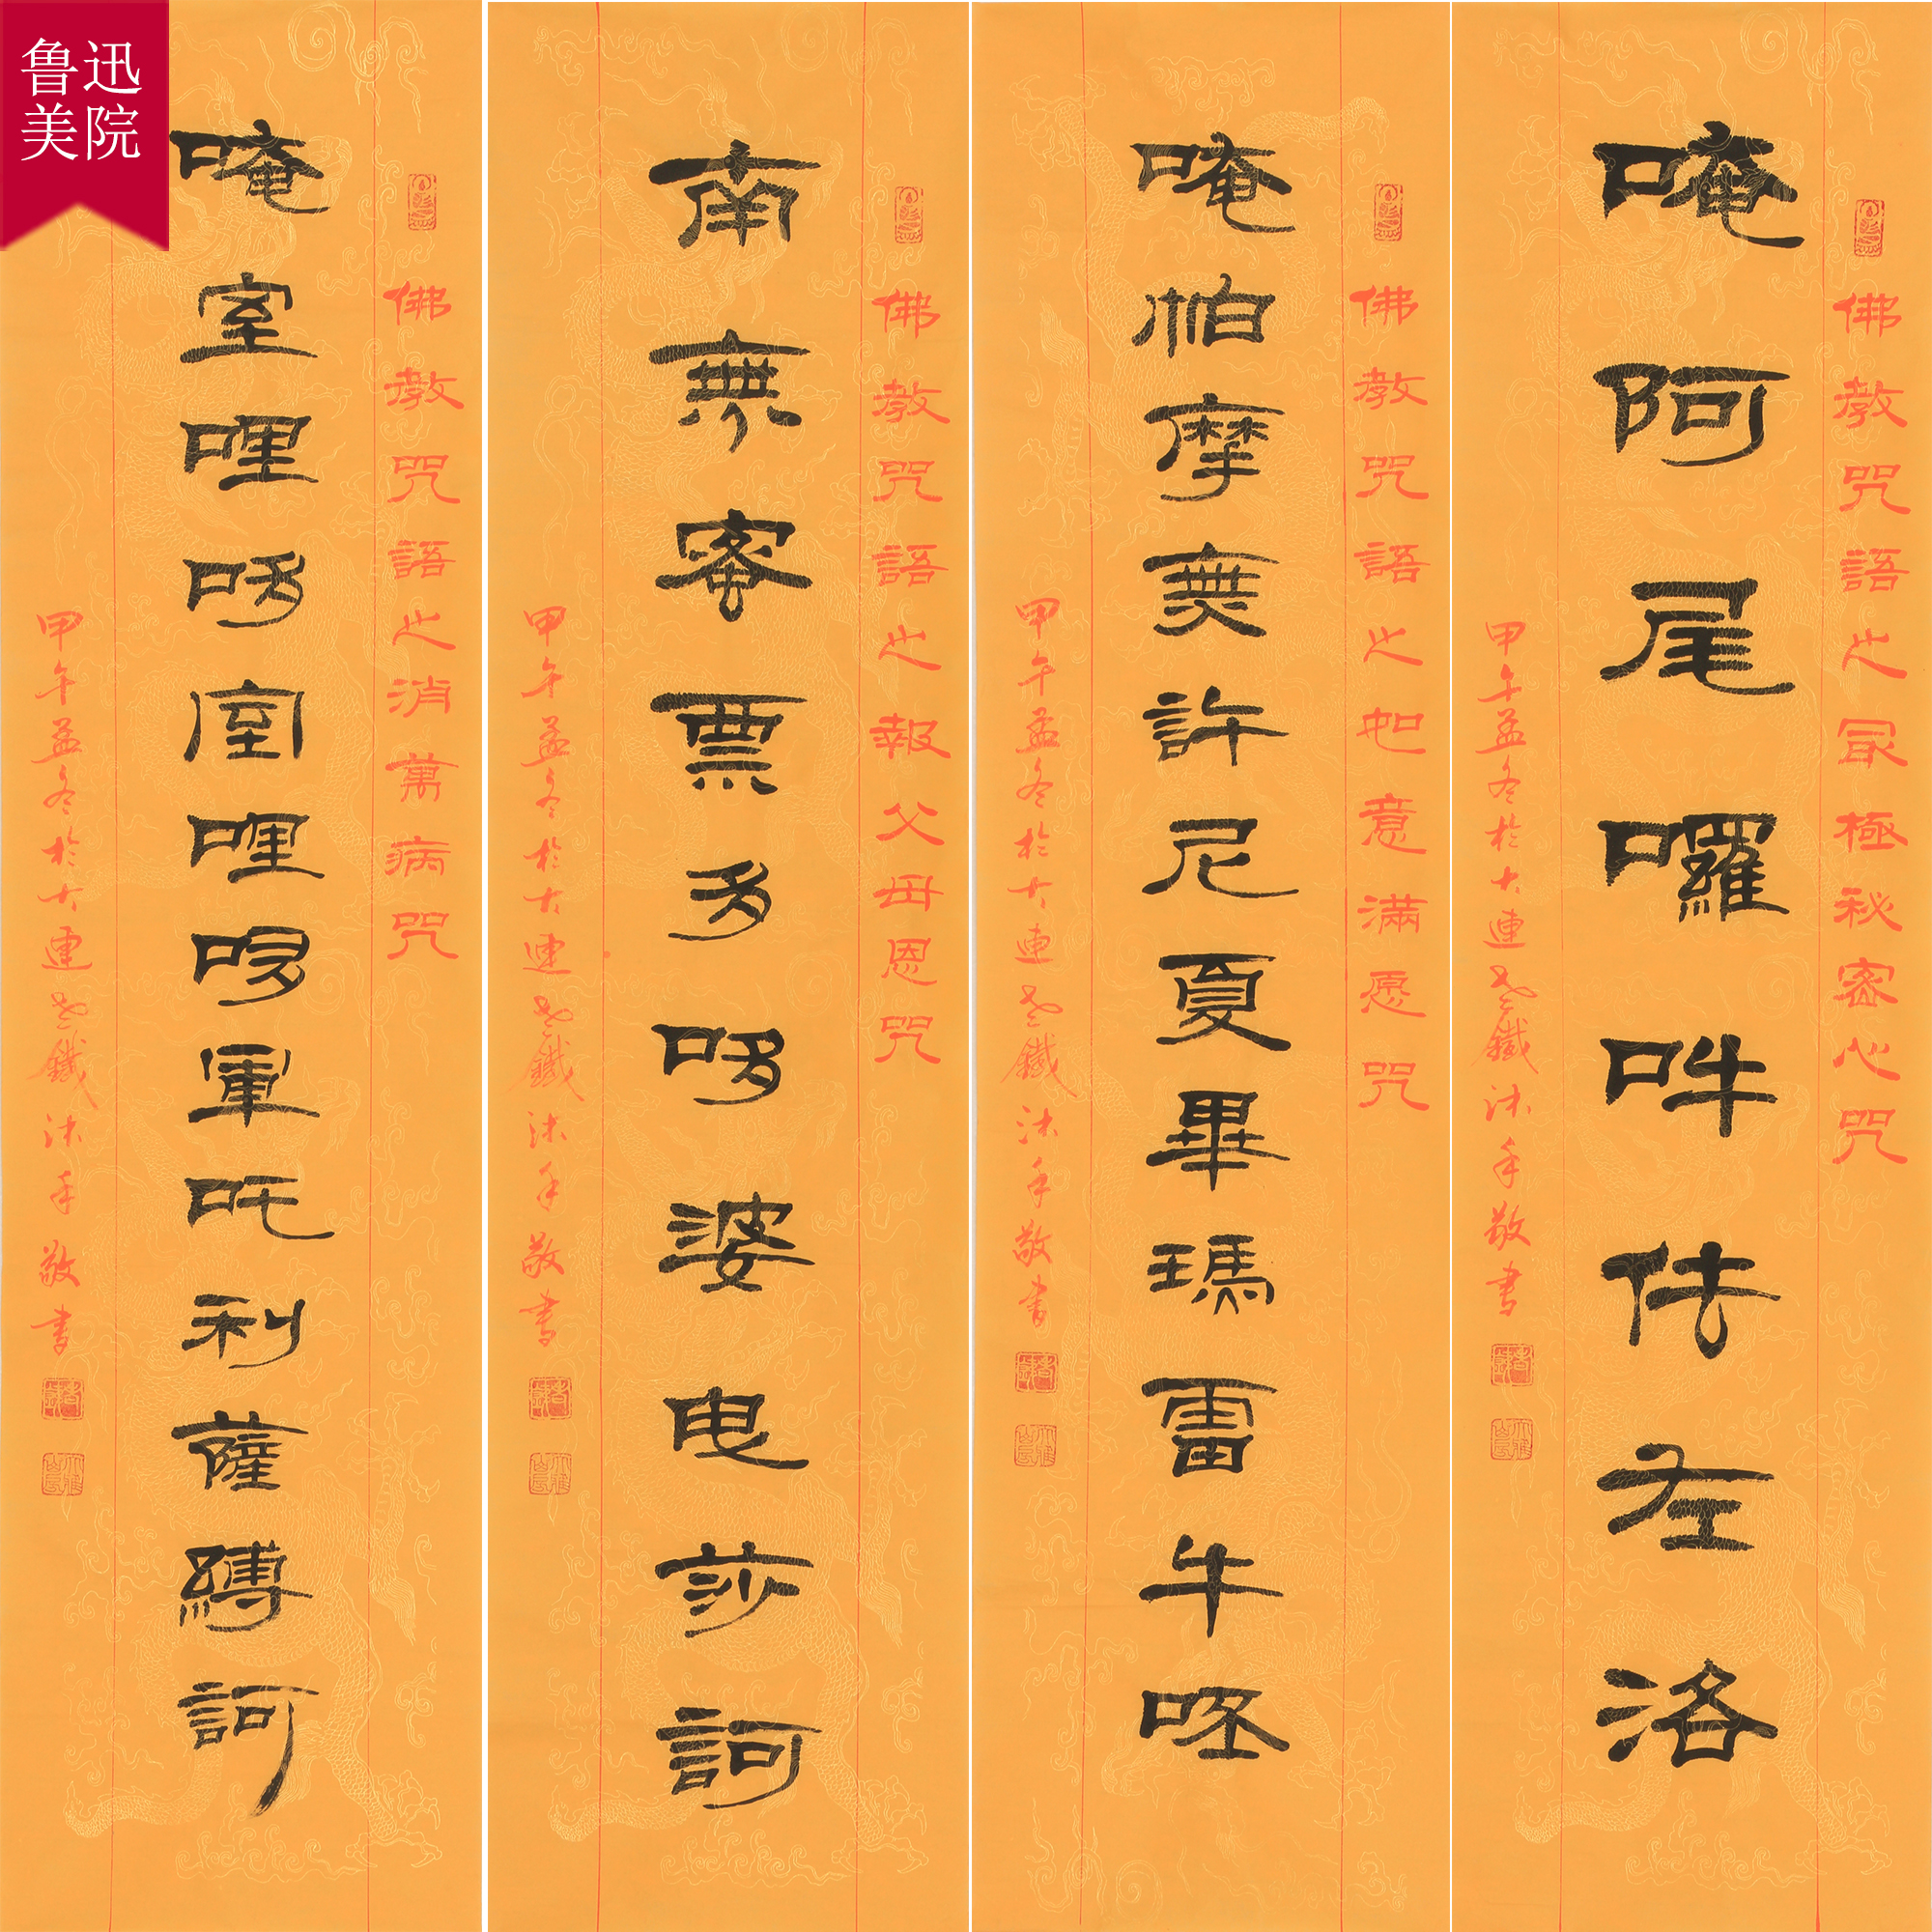 鲁迅
美院
佛教咒語之冣極秘密心咒
唵阿尾囉吽佉左洛
甲午孟冬於大連老鐵沐手敬書
佛教咒語之如意滿愿咒
唵帕摩無許尼夏畢瑪雷牛呸
甲午孟冬於大連老鐵沐手敬書
佛教咒語之報父母恩咒
南無蜜票多哆婆曳莎訶
甲午孟冬於大連老鐵沐手敬書
佛教咒語之消萬病咒
唵室哩哆室哩哆軍吒利薩縛訶
甲午孟冬於大連老鐵沐手敬書